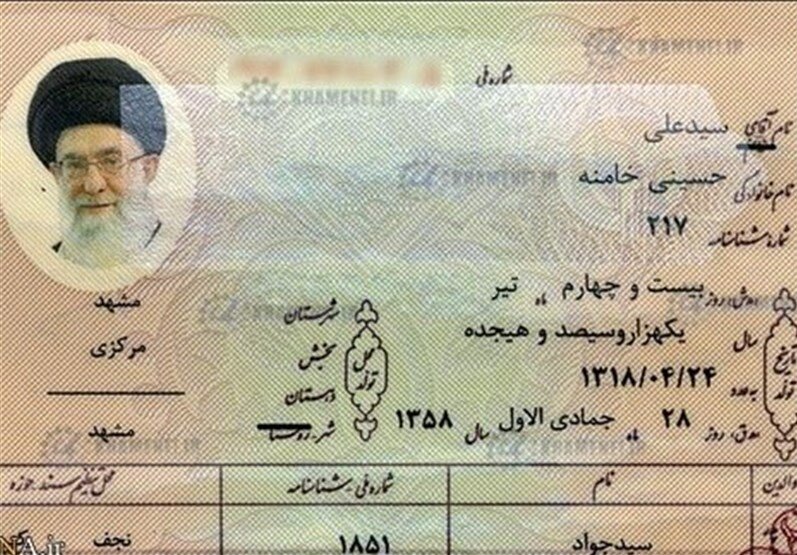 شماره ملی
KHAMENEI.IR
نام آقای سیدعلی
نام خانوادگی حسینی خامنه
شماره شناسنامه ۲۱۷
شمسی: روز بیست و چهارم ماه تیر
سال یکهزاروسیصد و هیجده
به عدد ۱۳۱۸/۰۴/۲۴
قمری: روز ۲۸ ماه جمادی الاول سال ۱۳۵۸
تاریخ تولد
محل تولد
شهرستان مشهد
بخش مرکزی
دهستان
شهر-روستا مشهد
والدین نام شماره ملی-شناسنامه محل تنظیم سند-حوزه
پدر سیدجواد ۱۸۵۱ نجف
NA.ir